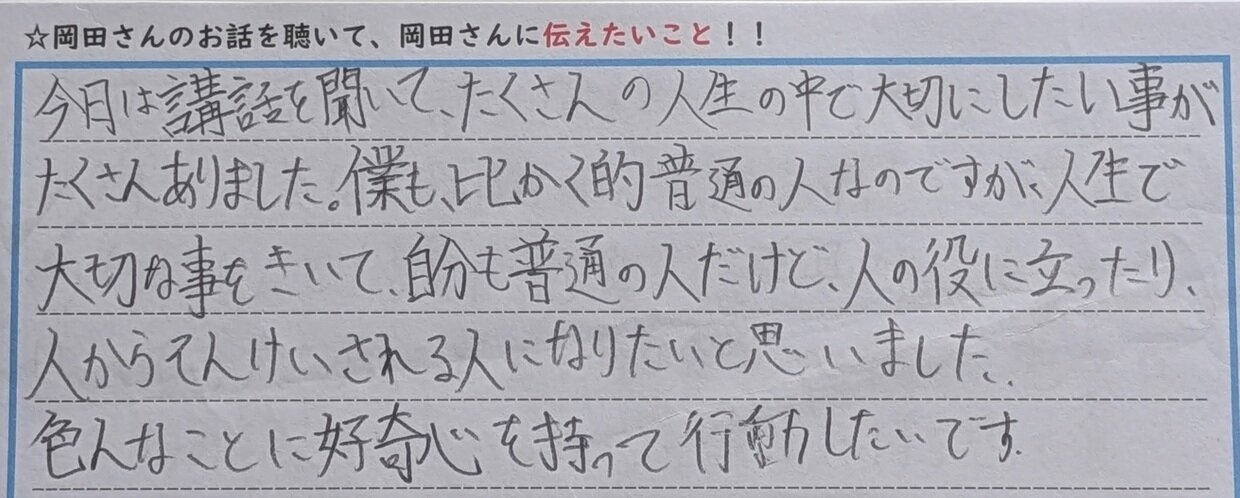 ☆岡田さんのお話を聴いて、岡田さんに伝えたいこと！！
今日は講話を聞いて、たくさんの人生の中で大切にしたい事が
たくさんありました。僕も、比かく的普通の人なのですが、人生で
大切な事をきいて、自分も普通の人だけど、人の役に立ったり、
人からそんけいされる人になりたいと思いました。
色んなことに好奇心を持って行動したいです。